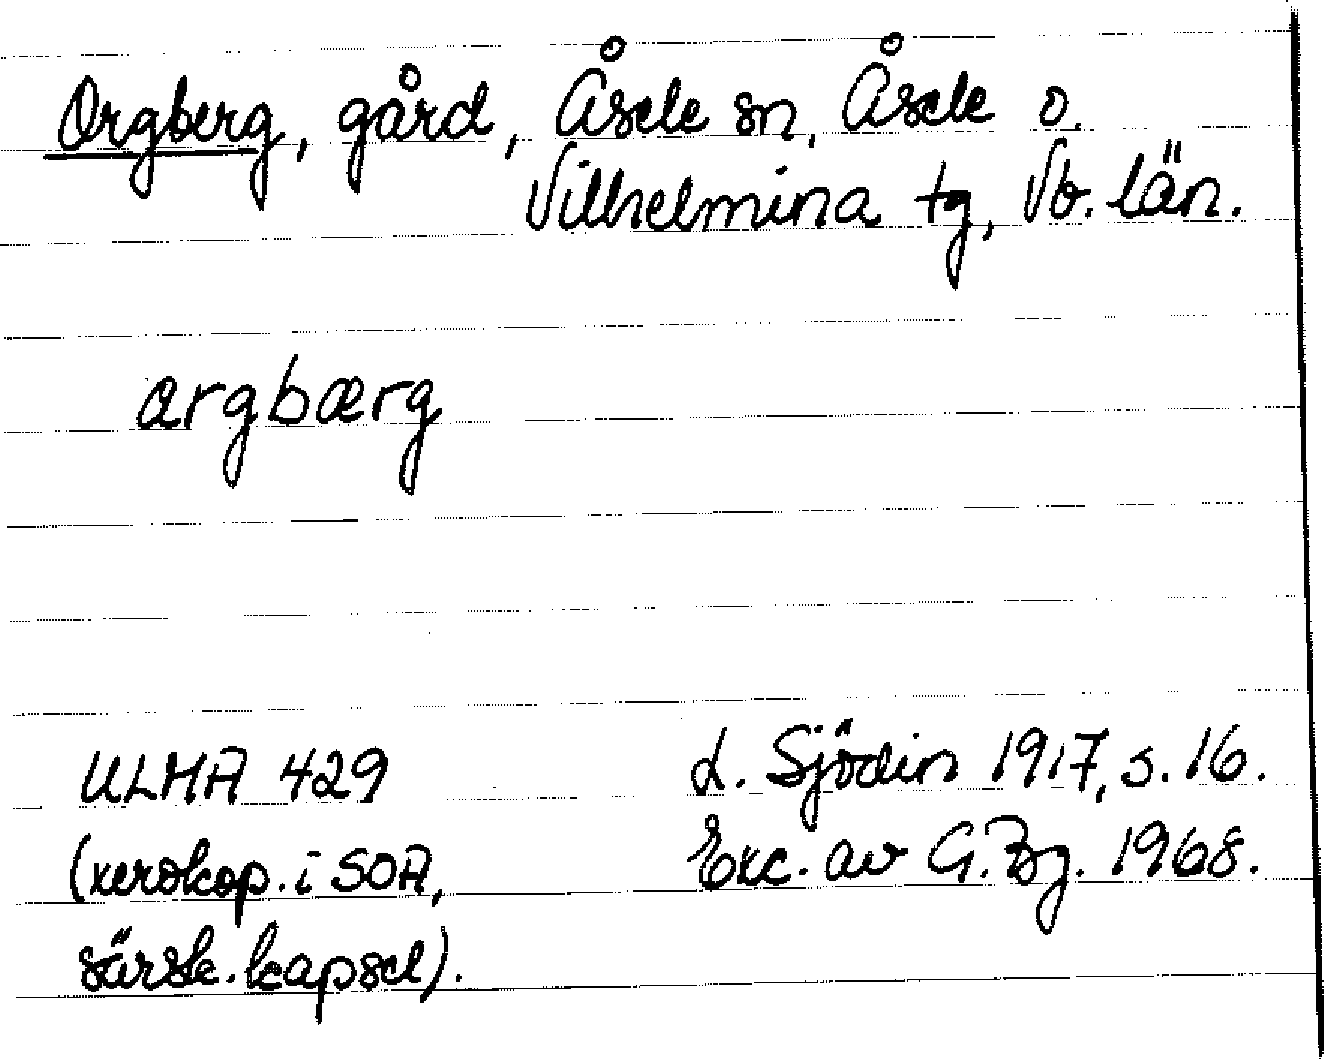 Orgberg, gård, Åsele sn, Åsele o.
Vilhelmina tg, Vb. län.
argbærg
ULMA 429
(xerokop. i SOA,
särsk. kapsel).
L. Sjödin 1917, s. 16.
Exc. av G. Bg. 1968.